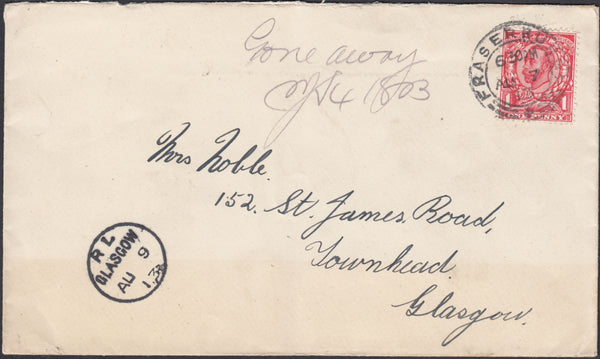 Gone away
1803
FRASERBU
6.30 PM
7
AU
Mrs Noble.
152. St. James Road,
Townhead.
Glasgow.
R L
GLASGOW
AU 9
13